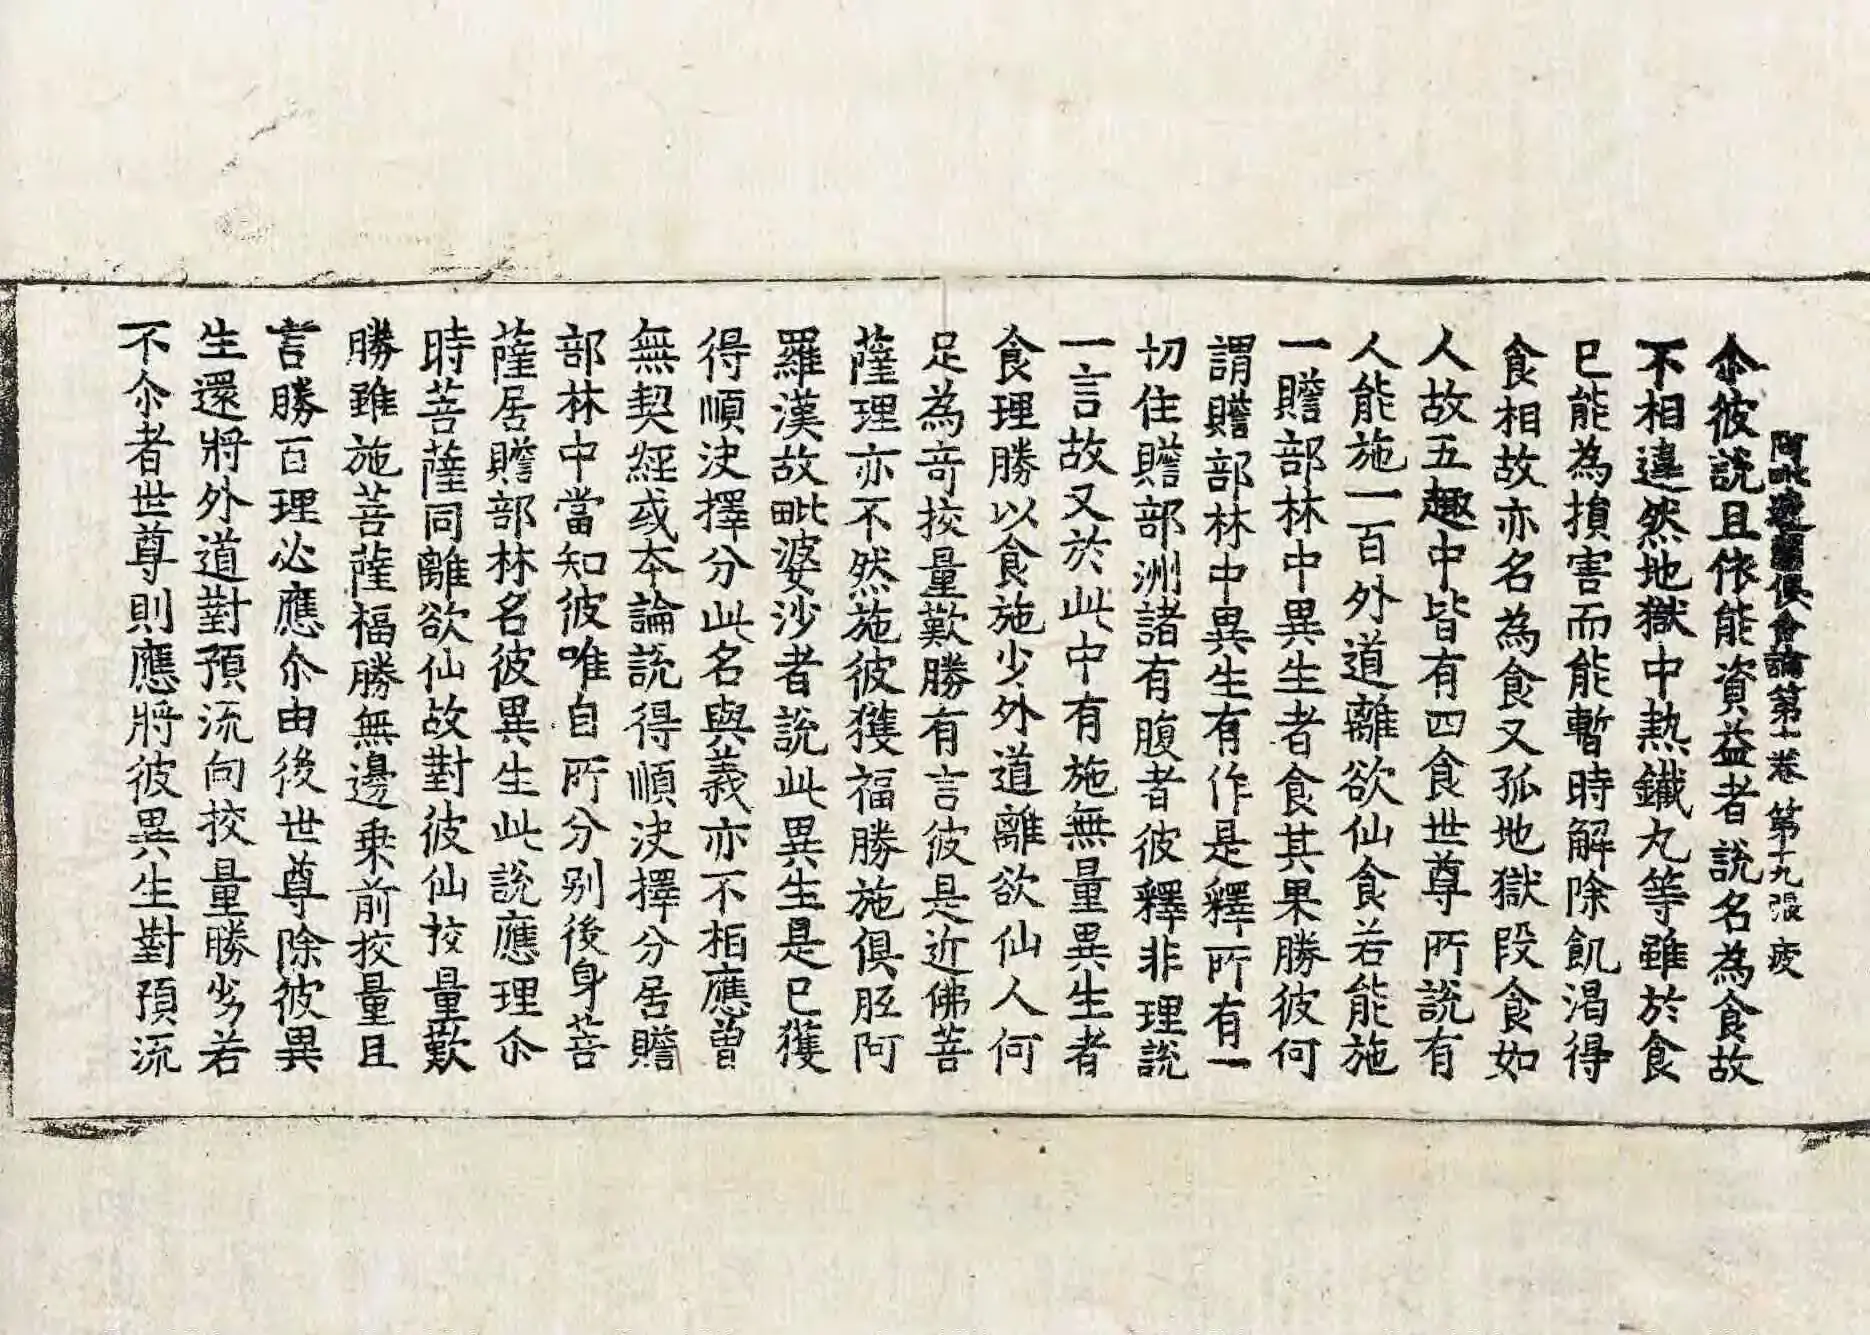 阿毗達磨俱舍論第十卷 第十九張 疲
尒彼說且依能資益者說名為食故
不相違然地獄中熱鐵丸等雖於食
巳能為損害而能暫時解除飢渴得
食相故亦名為食又孤地獄段食如
人故五趣中皆有四食世尊所說有
人能施一百外道離欲仙食若能施
一贍部林中異生者食其果勝彼何
謂贍部林中異生有作是釋所有一
切住贍部洲諸有腹者彼釋非理說
一言故又於此中有施無量異生者
食理勝以食施少外道離欲仙人何
足為奇挍量歎勝有言彼是近佛菩
薩理亦不然施彼獲福勝施俱胝阿
羅漢故毗婆沙者說此異生是巳獲
得順決擇分此名與義亦不相應曾
無契經或本論說得順決擇分居贍
部林中當知彼唯自所分別後身菩
薩居贍部林名彼異生此說應理尒
時菩薩同離欲仙故對彼仙挍量歎
勝雖施菩薩福勝無邊乗前挍量且
言勝百理必應尒由後世尊除彼異
生還將外道對預流向挍量勝劣若
不尒者世尊則應將彼異生對預流